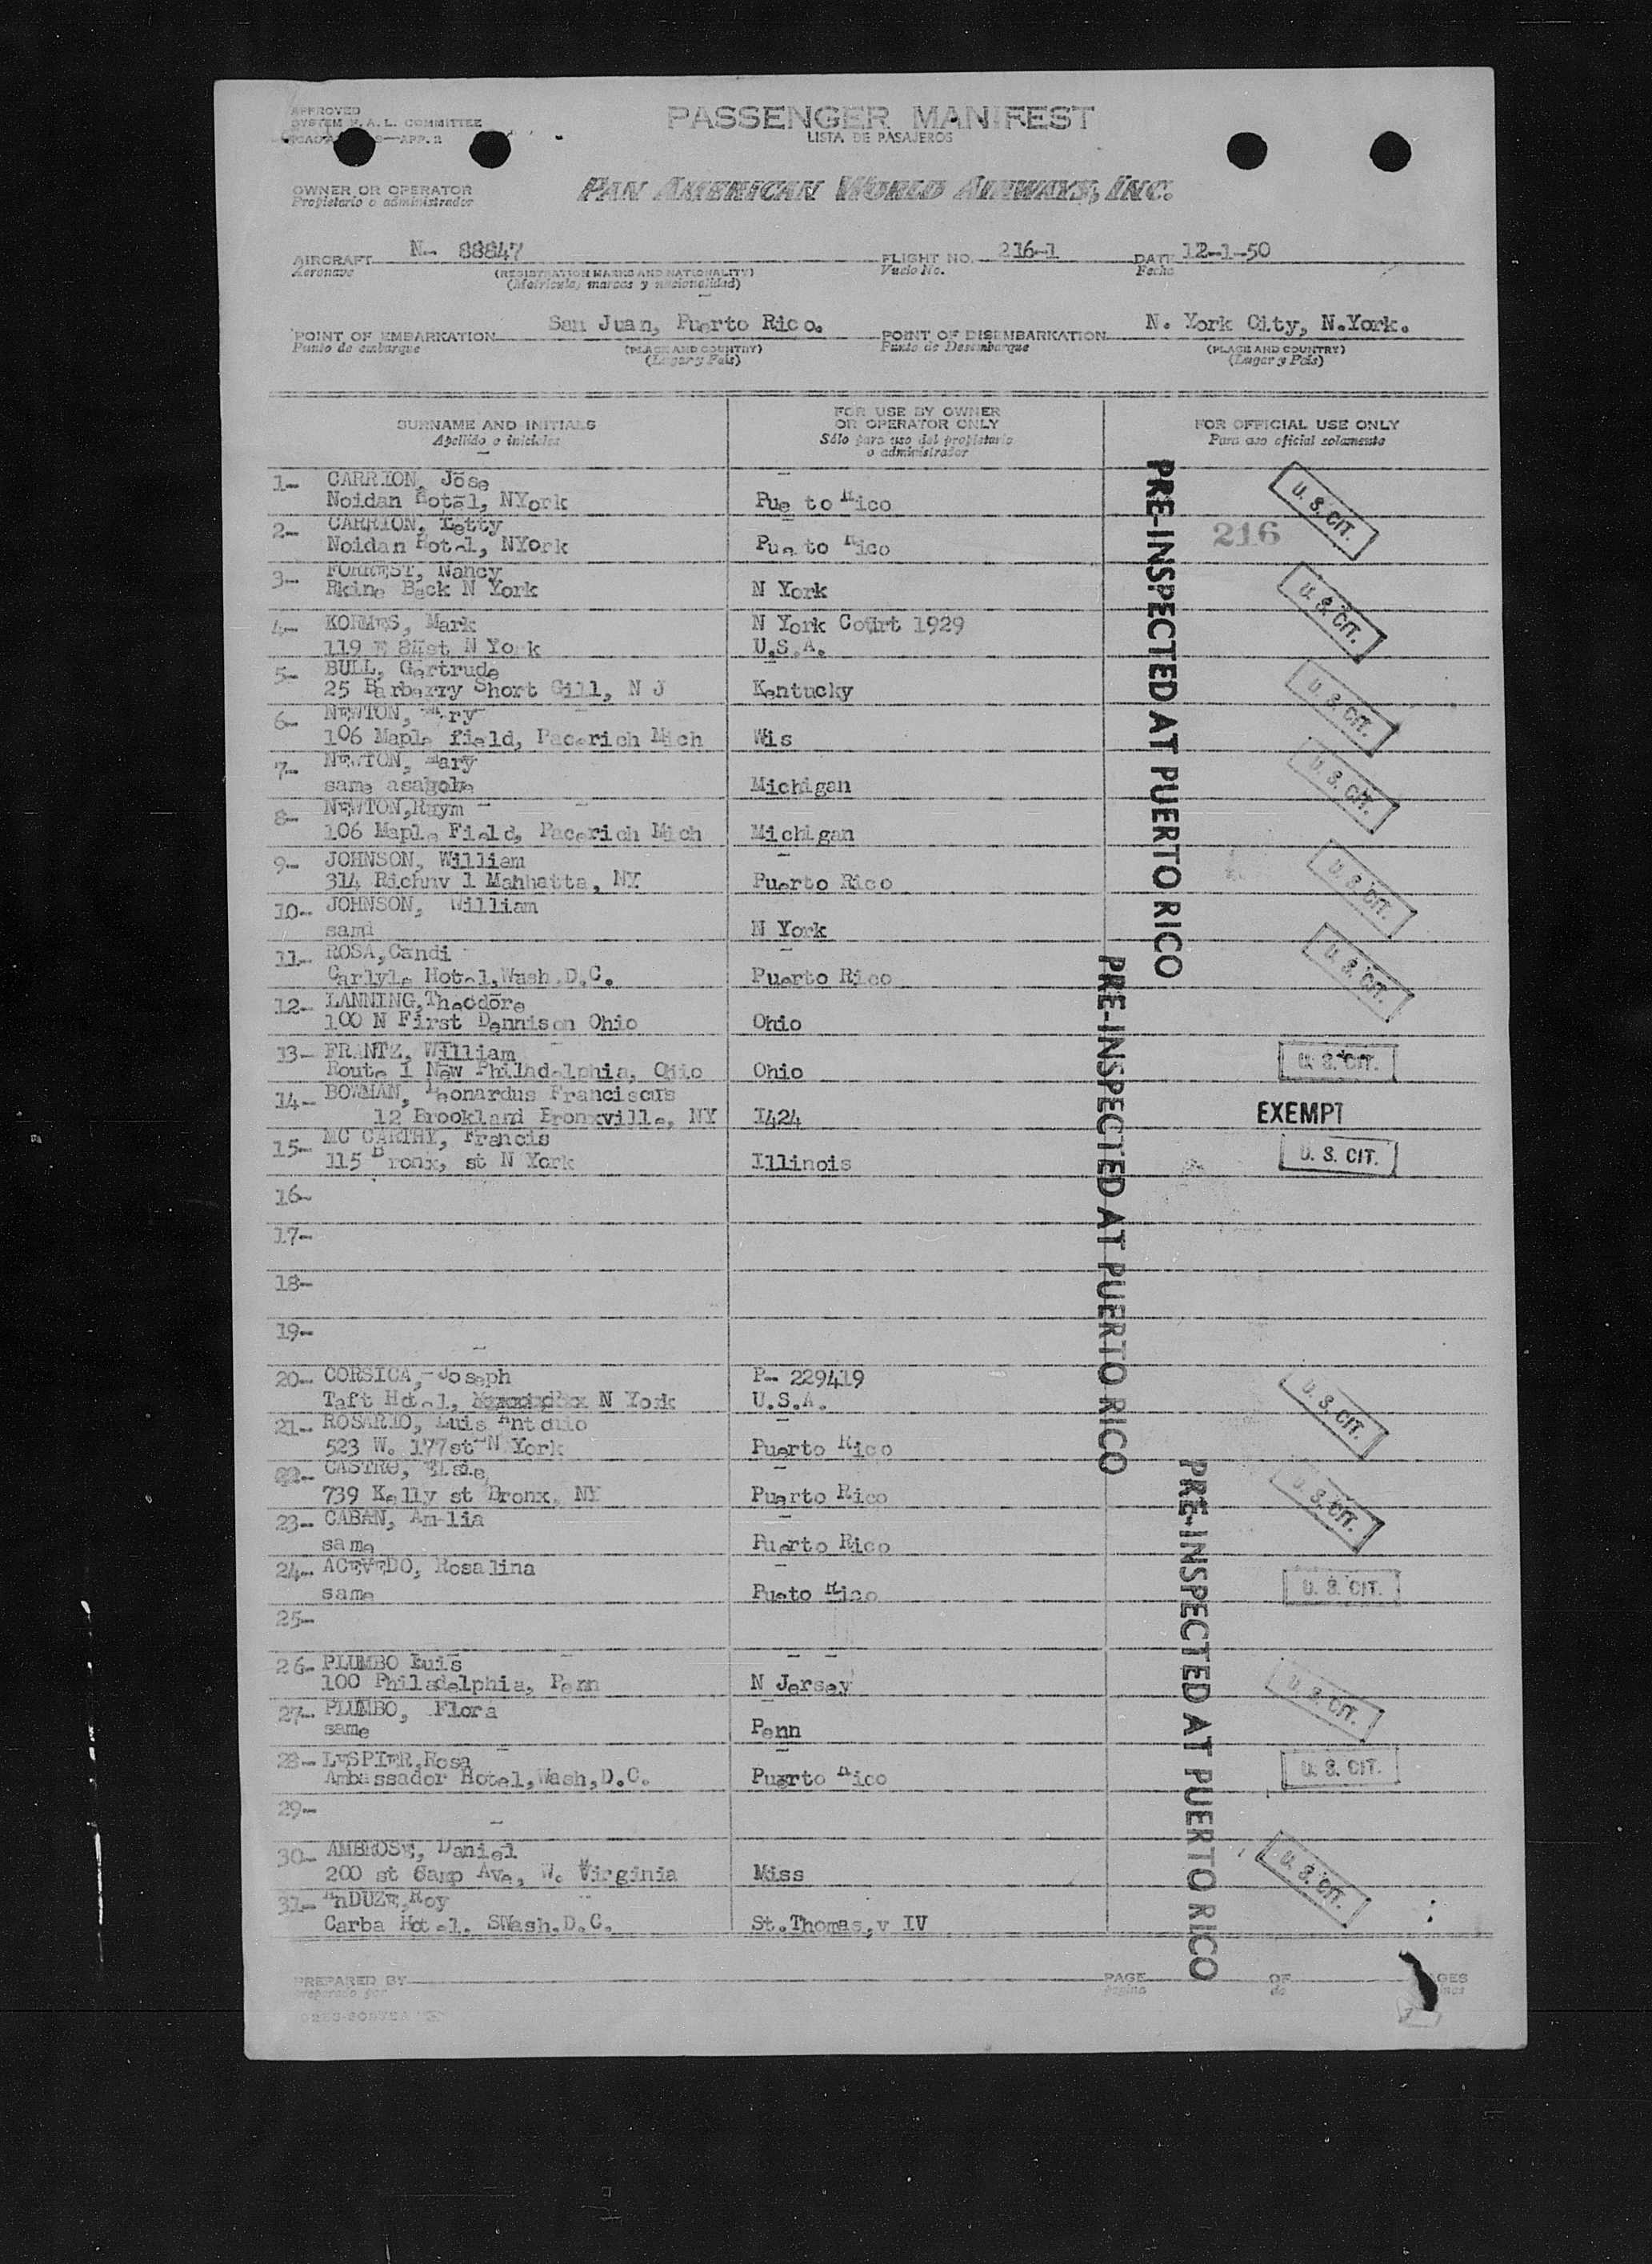 APPROVED
SYSTEM F.A.L. COMMITTEE
APP. 2
PASSENGER MANIFEST
LISTA DE PASAJEROS
OWNER OR OPERATOR
Propietario o administrador
PAN AMERICAN WORLD AIRWAYS, INC.
AIRCRAFT N- 88847 FLIGHT NO. 216-1 DATE 12-1-50
Aeronave (REGISTRATION MARKS AND NATIONALITY) Vuelo No. Fecha
(Matrícula, marcas y nacionalidad)
POINT OF EMBARKATION San Juan, Puerto Rico. POINT OF DISEMBARKATION N. York City, N.York.
Punto de embarque (PLACE AND COUNTRY) Punto de Desembarque (PLACE AND COUNTRY)
(Lugar y País) (Lugar y País)
SURNAME AND INITIALS FOR USE BY OWNER OR OPERATOR ONLY FOR OFFICIAL USE ONLY
Apellido e iniciales Sólo para uso del propietario o administrador Para uso oficial solamente
1- CARRION, Jose
Noidan Hotel, NYork Pue to Rico U. S. CIT.
2- CARRION, Letty 216
Noidan Hotel, NYork Pue to Rico
3- FORREST, Nancy
Rkine Back N York N York U. S. CIT.
4- KORMES, Mark N York Court 1929
119 E 84st N Yo k U.S.A.
5- BULL, Gertrude
25 Barberry Short Gill, N J Kentucky U. S. CIT.
6- NEWTON, Mary
106 Maple field, Pacerich Mich Wis
7- NEWTON, Mary
same asabobe Michigan U. S. CIT.
8- NEWTON,Raym
106 Maple Field, Pacerich Mich Michigan
9- JOHNSON, William
314 Richnv l Mahhatta, NY Puerto Rico U. S. CIT.
10- JOHNSON, William
sami N York
11- ROSA,Candi
Carlyle Hotel,Wash.D.C. Puerto Rico U. S. CIT.
12- LANNING,Theodore
100 N First Dennison Ohio Ohio
13- FRANTZ, William
Route 1 New Philadelphia, Ohio Ohio U. S. CIT.
14- BOWMAN, Leonardus Franciscus
12 Brookland Bronxville, NY I424 EXEMPT
15- MC CARTHY, Francis
115 Bronx, st N York Illinois U. S. CIT.
16-
17-
18-
19-
20- CORSICA, Joseph P- 229419
Taft Hotel, N York U.S.A. U. S. CIT.
21- ROSARIO, Luis Antonio
523 W. 177st N York Puerto Rico
22- CASTRO, Elsie
739 Kelly st Bronx, NY Puerto Rico U. S. CIT.
23- CABAN, Amelia
same Puerto Rico
24- ACEVEDO, Rosalina
same Pueto Rico U. S. CIT.
25-
26- PLUMBO Luis
100 Philadelphia, Penn N Jersey U. S. CIT.
27- PLUMBO, Flora
same Penn
28- LESPIER,Rosa
Ambassador Hotel,Wash,D.C. Puerto Rico U. S. CIT.
29-
30- AMBROSE, Daniel
200 st Camp Ave, W. Virginia Miss U. S. CIT.
31- AnDUZE,Roy
Carba Hotel. SWash.D.C. St.Thomas,v IV
PRE-INSPECTED AT PUERTO RICO
PRE-INSPECTED AT PUERTO RICO
PRE-INSPECTED AT PUERTO RICO
PREPARED BY PAGE OF
preparado por Página de